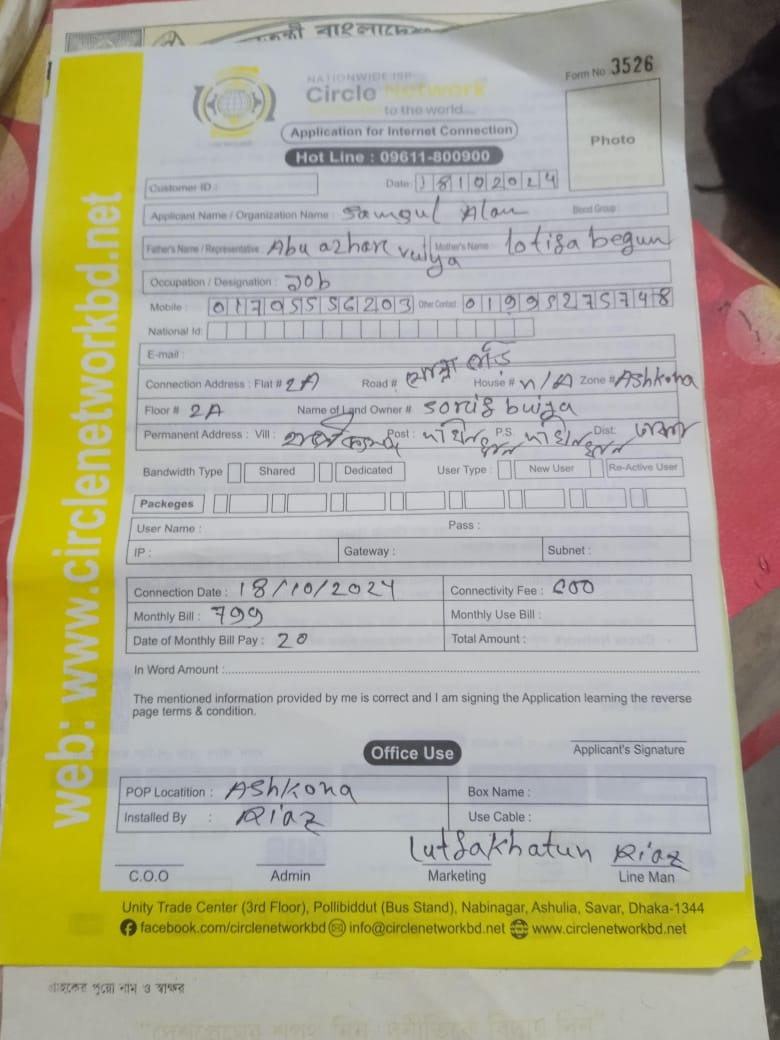 NATIONWIDE ISP
Circle Network
to the world...
Form No. 3526
Application for Internet Connection
Hot Line : 09611-800900
Photo
Customer ID :
Date: 18102024
Applicant Name / Organization Name : Samgul Alam Blood Group:
Father's Name / Representative : Abu azhar vuiya Mother's Name : lotifa begum
Occupation / Designation : Job
Mobile : 01705556203 Other Contact 01995275748
National Id:
E-mail :
Connection Address : Flat # 2A Road # House # n/A Zone # Ashkona
Floor # 2A Name of Land Owner # sorif buiya
Permanent Address : Vill : Post : P.S. Dist:
Bandwidth Type Shared Dedicated User Type : New User Re-Active User
Packeges
User Name : Pass :
IP : Gateway : Subnet :
Connection Date : 18/10/2024 Connectivity Fee :
Monthly Bill : 799 Monthly Use Bill :
Date of Monthly Bill Pay : 20 Total Amount :
In Word Amount :
The mentioned information provided by me is correct and I am signing the Application learning the reverse
page terms & condition.
Applicant's Signature
Office Use
POP Locatition : Ashkona Box Name :
Installed By : Riaz Use Cable :
Lutfakhatun Riaz
C.O.O Admin Marketing Line Man
Unity Trade Center (3rd Floor), Pollibiddut (Bus Stand), Nabinagar, Ashulia, Savar, Dhaka-1344
facebook.com/circlenetworkbd info@circlenetworkbd.net www.circlenetworkbd.net
web: www.circlenetworkbd.net
গ্রাহকের পুরো নাম ও স্বাক্ষর